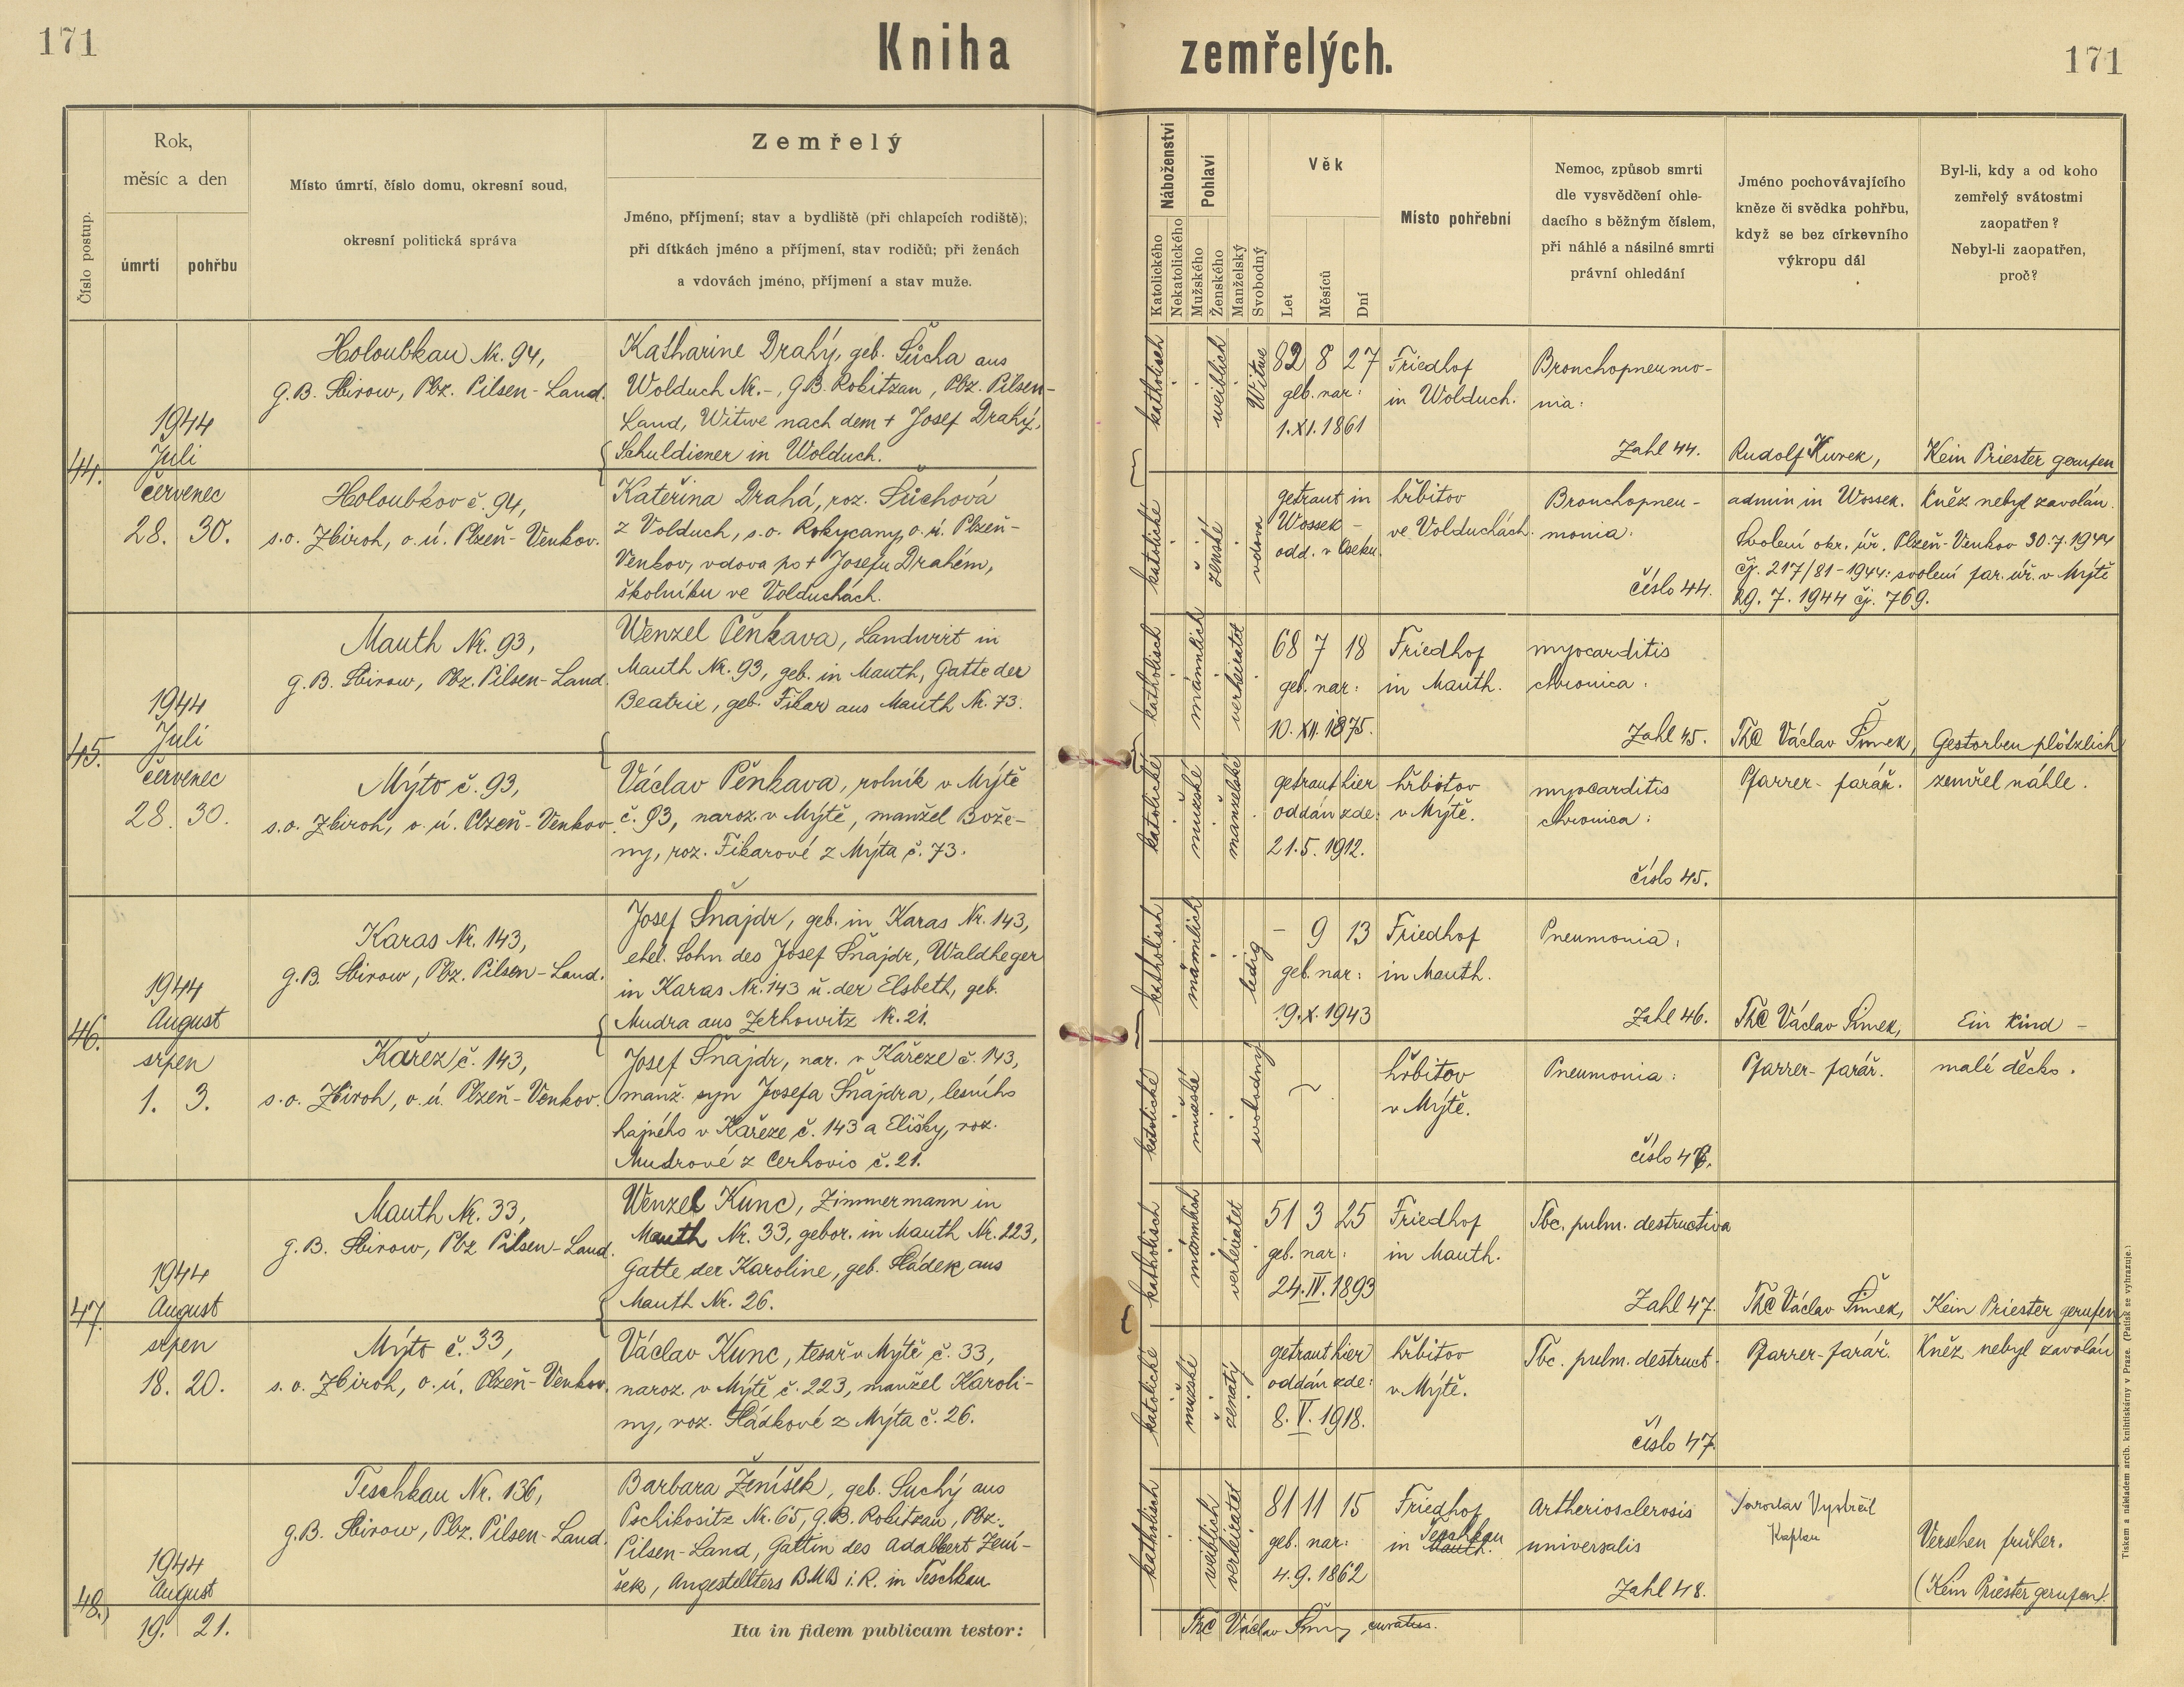 171
Kniha zemřelých.
171
Číslo postup.
Rok,
měsíc a den
úmrtí
pohřbu
Místo úmrtí, číslo domu, okresní soud,
okresní politická správa
Zemřelý
Jméno, příjmení; stav a bydliště (při chlapcích rodiště);
při dítkách jméno a příjmení, stav rodičů; při ženách
a vdovách jméno, příjmení a stav muže.
Náboženství
Katolického
Nekatolického
Pohlaví
Mužského
Ženského
Manželský
Svobodný
Věk
Let
Měsíců
Dní
Místo pohřební
Nemoc, způsob smrti
dle vysvědčení ohle-
dacího s běžným číslem,
při náhlé a násilné smrti
právní ohledání
Jméno pochovávajícího
kněze či svědka pohřbu,
když se bez církevního
výkropu dál
Byl-li, kdy a od koho
zemřelý svátostmi
zaopatřen?
Nebyl-li zaopatřen,
proč?
44.
1944
Juli
červenec
28. 30.
Holoubkau Nr. 94,
G.B. Sbirow, Pbz. Pilsen-Land.
Holoubkov č. 94,
s.o. Zbiroh, o.ú. Plzeň-Venkov.
Katharine Drahý, geb. Šůcha aus
Wolduch Nr.-, G.B. Rokitzan, Pbz. Pilsen-
Land, Witwe nach dem + Josef Drahý,
Schuldiener in Wolduch.
Kateřina Drahá, roz. Šůchová
z Volduch, s.o. Rokycany, o.ú. Plzeň-
Venkov, vdova po + Josefu Drahém,
školníku ve Volduchách.
katholisch
weiblich
Witwe
82 8 27
geb. nar:
1.XI.1861
katolické
ženské
vdova
getraut in
Wossek -
odd. v Oseku.
Friedhof
in Wolduch.
hřbitov
ve Volduchách.
Bronchopneumo-
nia:
Zahl 44.
Bronchopneu-
monia:
číslo 44.
Rudolf Kurek,
admin in Wossek.
Kein Priester gerufen
Kněz nebyl zavolán.
Svolení okr. úř. Plzeň-Venkov 30.7.1944
čj. 217/81-1944: svolení far. úř. v Mýtě
29. 7. 1944 čj. 769.
45.
1944
Juli
červenec
28. 30.
Mauth Nr. 93,
G.B. Sbirow, Pbz. Pilsen-Land.
Mýto č. 93,
s.o. Zbiroh, o.ú. Plzeň-Venkov.
Wenzel Pěnkava, Landwirt in
Mauth Nr. 93, geb. in Mauth, Gatte der
Beatrix, geb. Fikar aus Mauth Nr. 73.
Václav Pěnkava, rolník v Mýtě
č. 93, naroz. v Mýtě, manžel Bože-
ny, roz. Fikarové z Mýta č. 73.
katholisch
männlich
verheiratet
68 7 18
geb. nar:
10. XII. 1875.
katolické
mužské
manželské
getraut hier
oddán zde:
21.5.1912.
Friedhof
in Mauth.
hřbitov
v Mýtě.
myocarditis
chronica:
Zahl 45.
myocarditis
chronica:
číslo 45.
ThC Václav Šimek,
Pfarrer-farář.
Gestorben plötzlich
zemřel náhle.
46.
1944
August
srpen
1. 3.
Karas Nr. 143,
G.B. Sbirow, Pbz. Pilsen-Land.
Kařez č. 143,
s.o. Zbiroh, o.ú. Plzeň-Venkov.
Josef Šnajdr, geb. in Karas Nr. 143,
ehel. Sohn des Josef Šnajdr, Waldheger
in Karas Nr. 143 u. der Elsbeth, geb.
Mudra aus Zerhowitz Nr. 21.
Josef Šnajdr, nar. v Kařeze č. 143,
manž. syn Josefa Šnajdra, lesního
hajného v Kařeze č. 143 a Elišky, roz.
Mudrové z Cerhovic č. 21.
katholisch
männlich
ledig
- 9 13
geb. nar:
19.X.1943
katolické
mužské
svobodný
Friedhof
in Mauth.
hřbitov
v Mýtě.
Pneumonia:
Zahl 46.
Pneumonia:
číslo 46.
ThC Václav Šimek,
Pfarrer-farář.
Ein Kind -
malé děcko.
47.
1944
August
srpen
18. 20.
Mauth Nr. 33,
G.B. Sbirow, Pbz Pilsen-Land.
Mýto č. 33,
s.o. Zbiroh, o.ú. Plzeň-Venkov.
Wenzel Kunc, Zimmermann in
Mauth Nr. 33, gebor. in Mauth Nr. 223,
Gatte der Karoline, geb. Sládek aus
Mauth Nr. 26.
Václav Kunc, tesař v Mýtě č. 33,
naroz. v Mýtě č. 223, manžel Karoli-
ny, roz. Sládkové z Mýta č. 26.
katholisch
männlich
verheiratet
51 3 25
geb. nar:
24.IV.1893
katolické
mužské
ženatý
getraut hier
oddán zde:
8.V.1918.
Friedhof
in Mauth.
hřbitov
v Mýtě.
Tbc. pulm. destructiva
Zahl 47.
Tbc. pulm. destruct.
číslo 47
ThC Václav Šimek,
Pfarrer-farář.
Kein Priester gerufen
Kněz nebyl zavolán
48.
1944
August
19. 21.
Teschkau Nr. 136,
G.B. Sbirow, Pbz. Pilsen-Land.
Barbara Ženíšek, geb. Suchý aus
Pschikositz Nr. 65, G.B. Rokitzan, Pbz.
Pilsen-Land, Gattin des Adalbert Žení-
šek, Angestellters BMB i.R. in Teschkau.
katholisch
weiblich
verheiratet
81 11 15
geb. nar:
4.9.1862
Friedhof
in Mauth. Teschkau
Artheriosclerosis
universalis
Zahl 48.
Jaroslav Vystrčil
Kaplan
Versehen früher.
(Kein Priester gerufen).
Ita in fidem publicam testor:
ThC Václav Šimek, curatus.
Tiskem a nákladem arcib. knihtiskárny v Praze. (Patisk se vyhrazuje.)